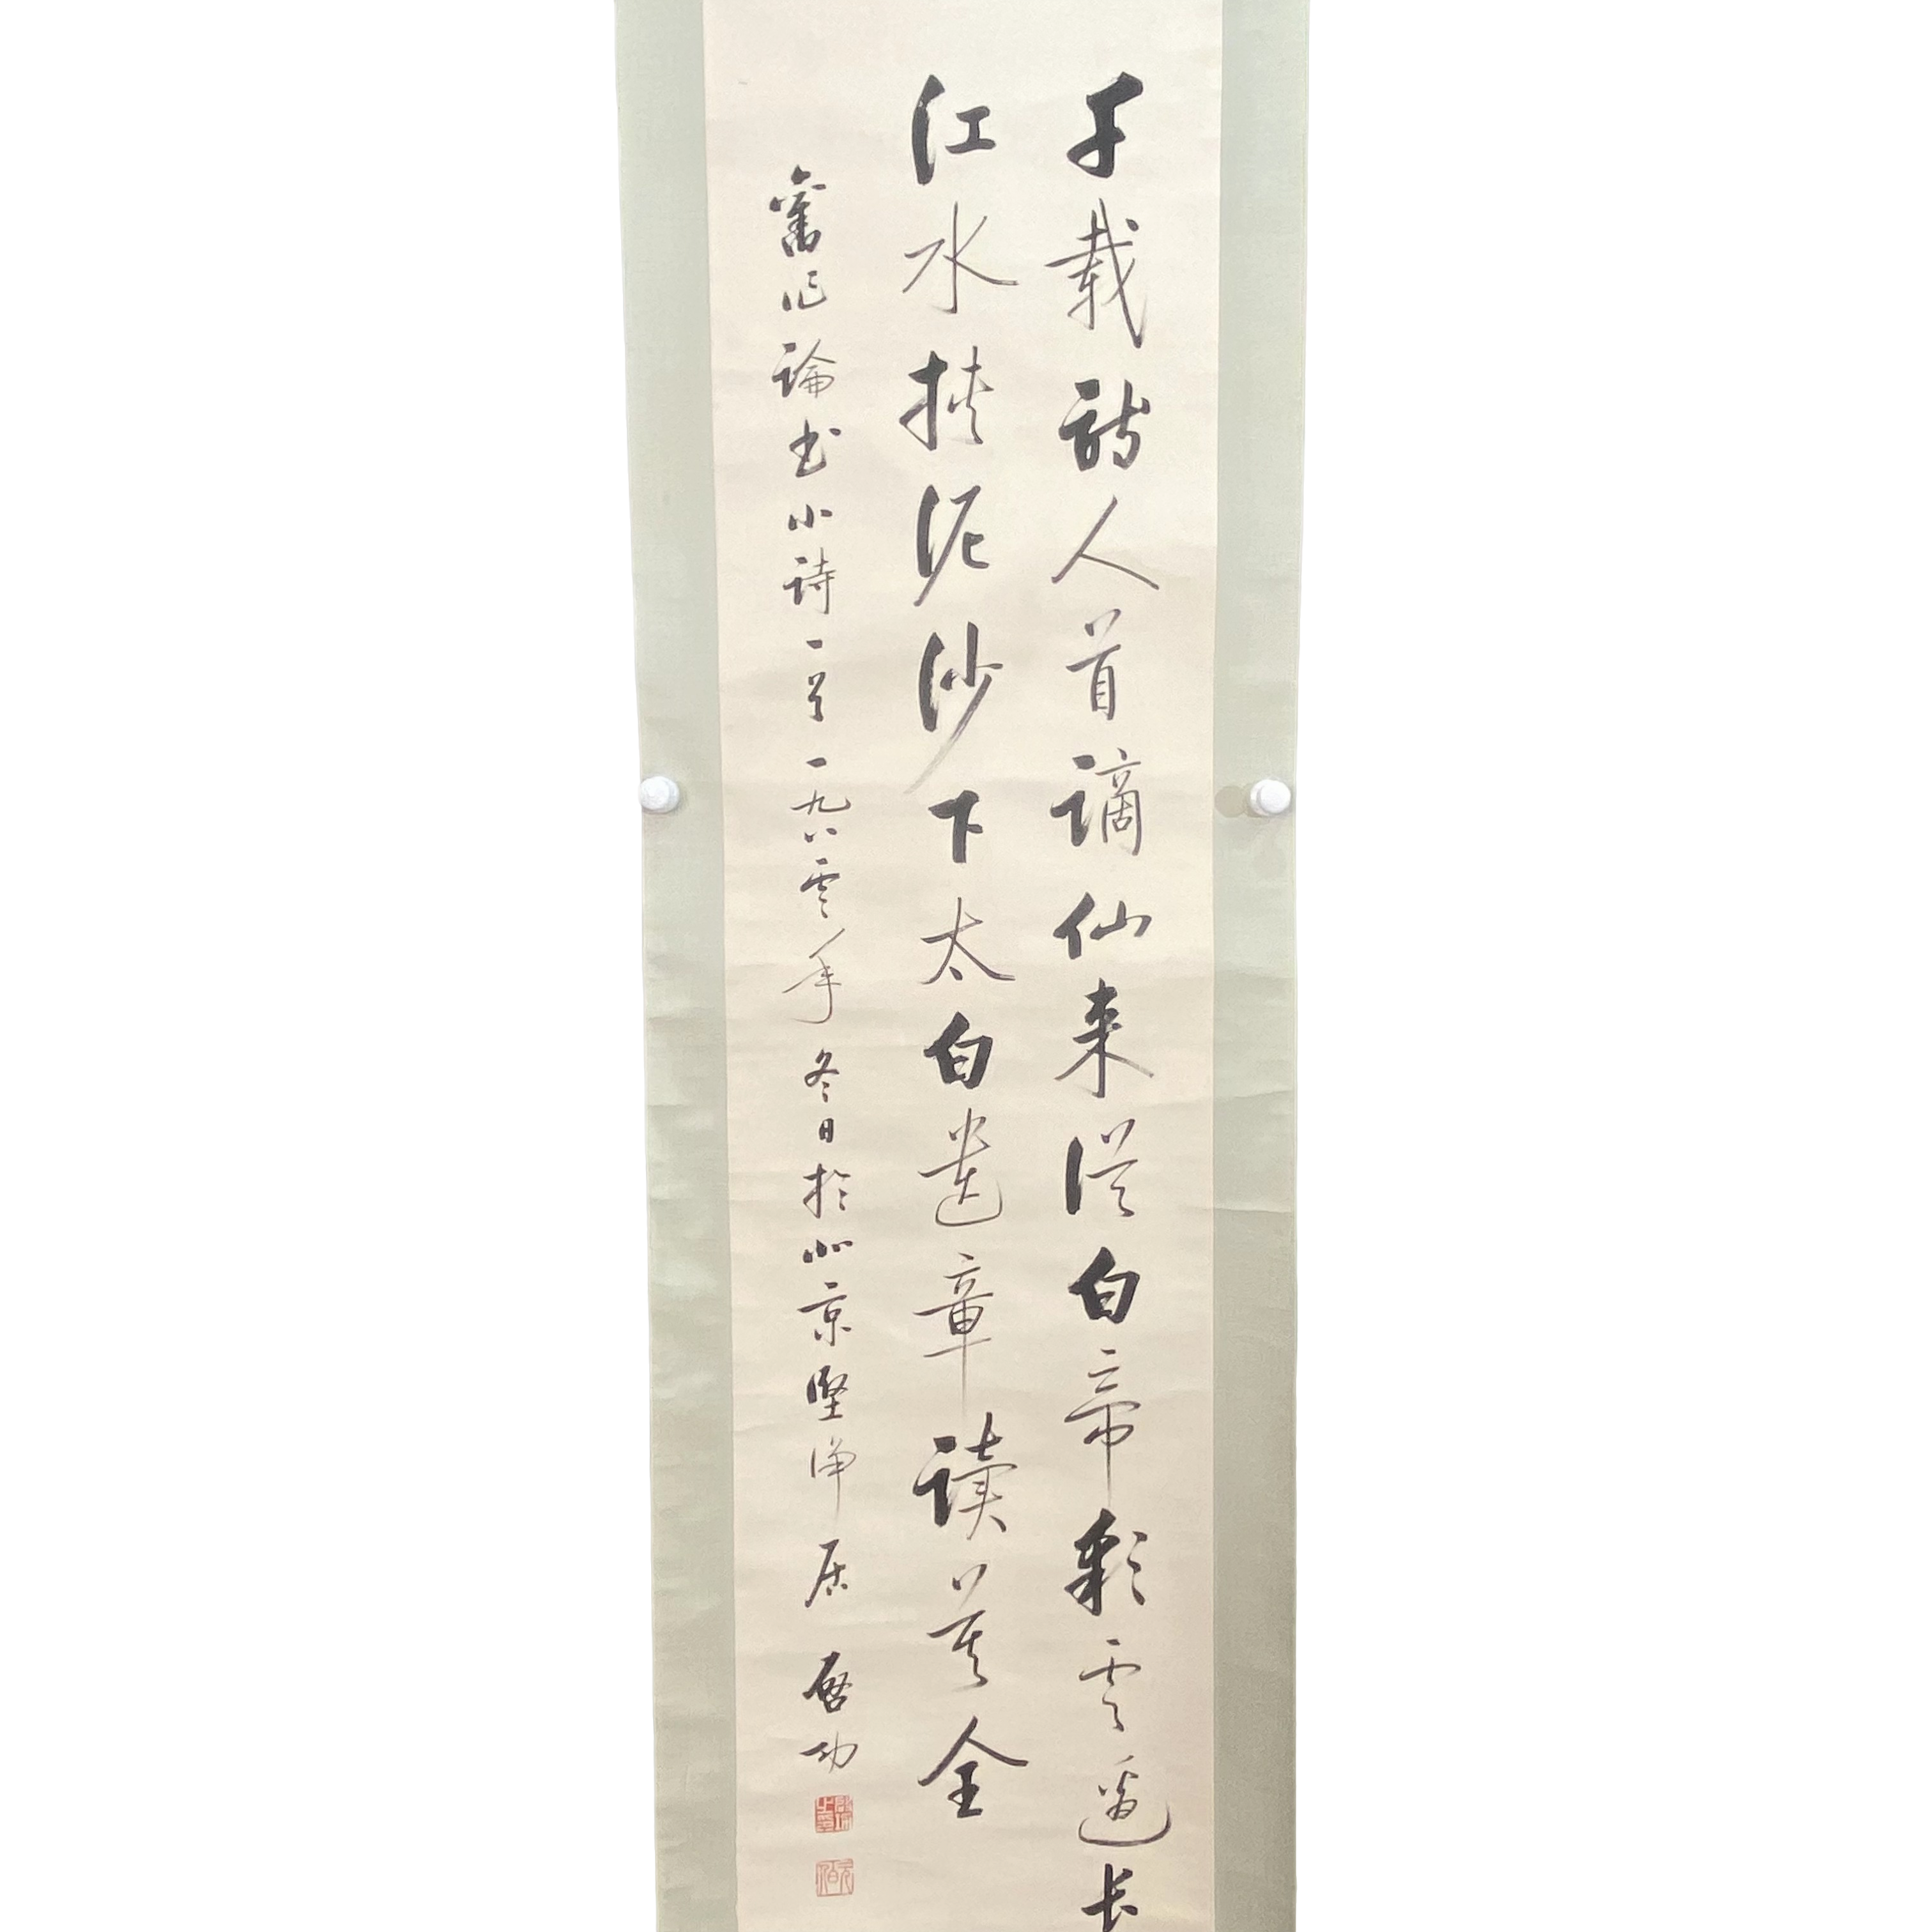 千载诗人首谪仙来从白帝彩云边长
江水挟泥沙下太白遗章读莫全
旧作论书小诗一首一九八零年冬日于北京坚净居 启功